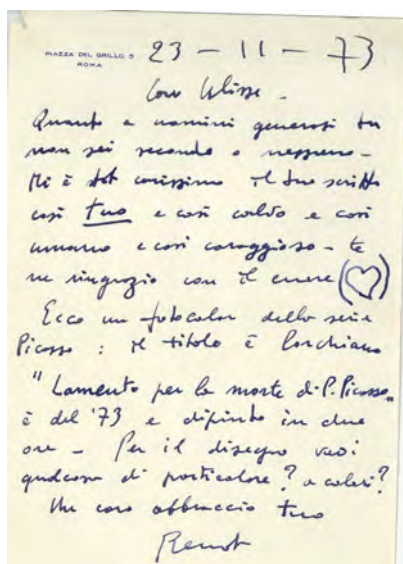 PIAZZA DEL GRILLO 5
ROMA
23 - 11 - 73
Caro Ulisse -
Quanto a uomini generosi tu
non sei secondo a nessuno -
Mi è stat carissimo il tuo scritto
così tuo e così caldo e così
umano e così coraggioso - te
ne ringrazio con il cuore
Ecco un fotocolor della serie
Picasso : il titolo è Lorchiano
"Lamento per la morte di P. Picasso"
è del '73 e dipinto in due
ore - Per il disegno vuoi
qualcosa di particolare? a colori?
Un caro abbraccio tuo
Renato